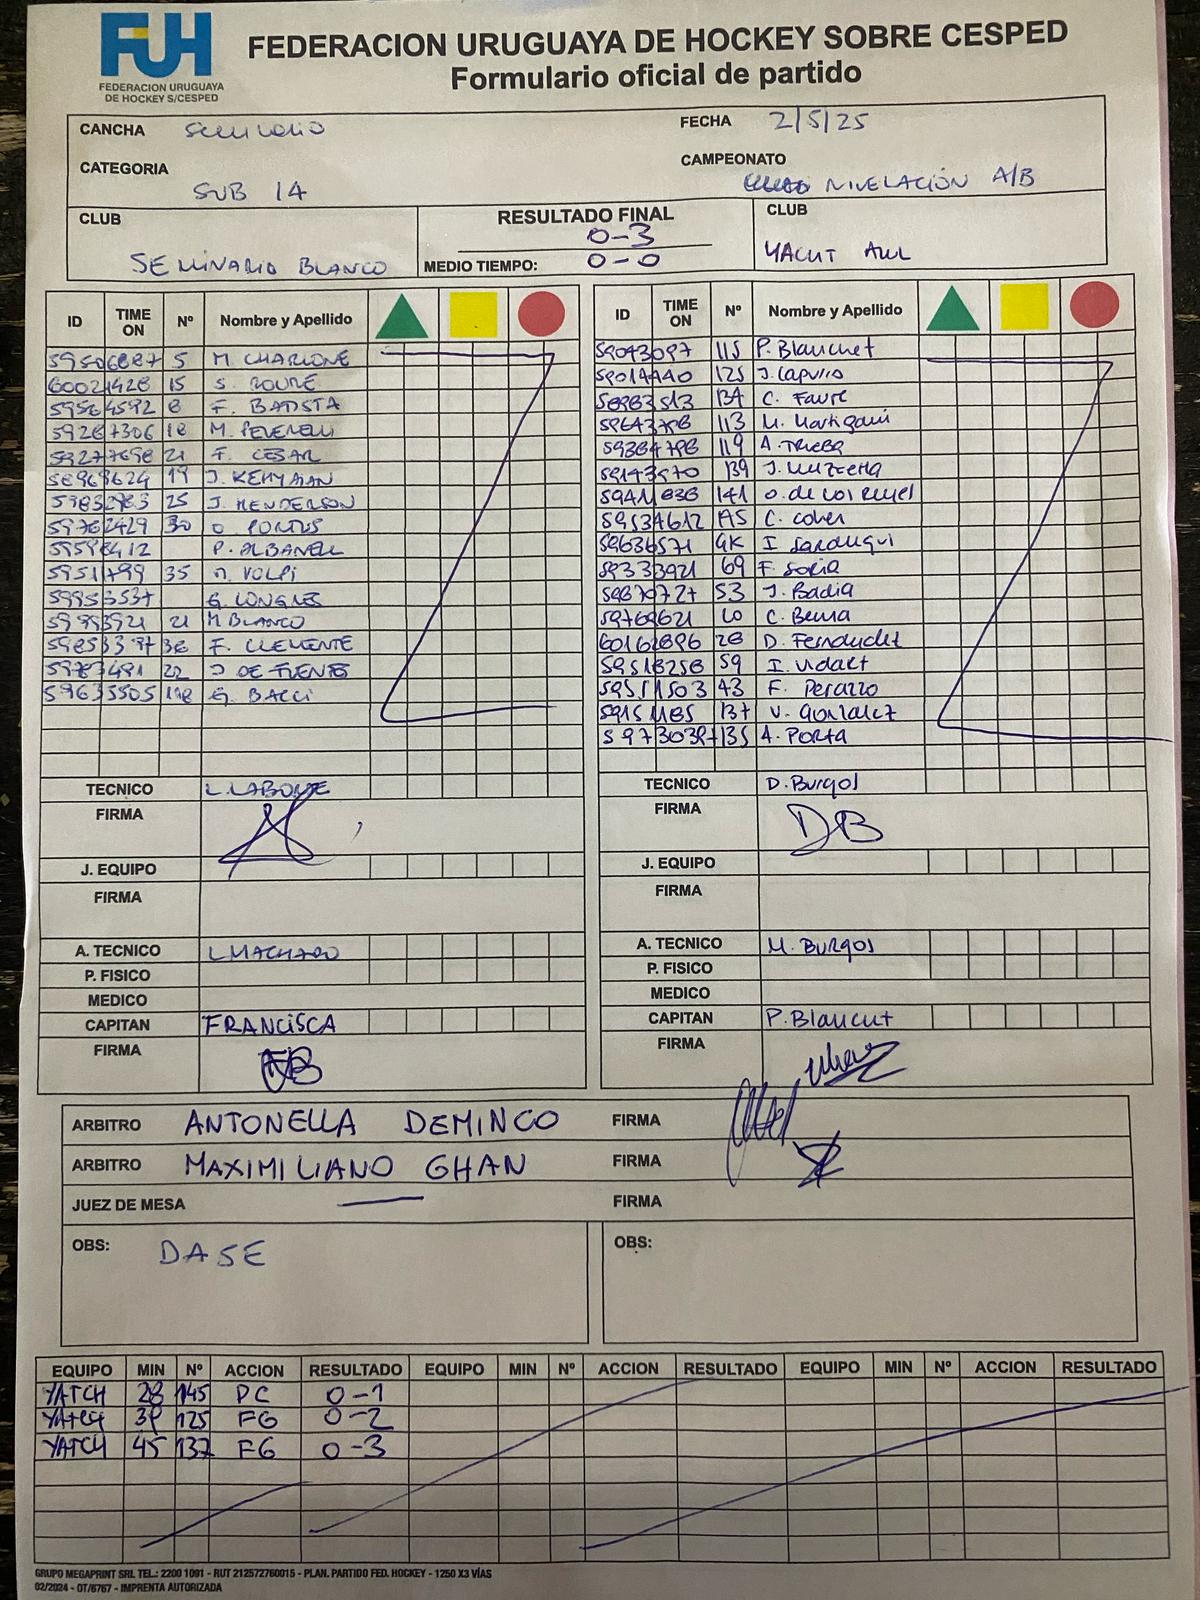 FUH
FEDERACION URUGUAYA
DE HOCKEY S/CESPED
FEDERACION URUGUAYA DE HOCKEY SOBRE CESPED
Formulario oficial de partido
CANCHA Seminario FECHA 2/5/25
CATEGORIA SUB 14 CAMPEONATO NIVELACIÓN A/B
CLUB SEMINARIO BLANCO RESULTADO FINAL 0-3 CLUB YACHT AZUL
MEDIO TIEMPO: 0-0
ID TIME ON Nº Nombre y Apellido ID TIME ON Nº Nombre y Apellido
59506887 5 M. CHARLONE 59043097 115 P. Blanchet
60021428 15 S. ROURE 59014440 125 J. Capurro
59564592 8 F. BATISTA 58983513 134 C. Favre
59287306 18 M. PEVERELLI 59643798 113 M. Martigani
59277698 21 F. CESAR 59384798 119 A. Trieba
58969624 19 J. KEHYAIAN 59143970 139
59832983 25 J. HENDERSON 59411838 141
59762429 30 O. PORTUS 59534612 145 C. Cohen
59598412 P. ALBANELL 59636571 GK I
59511799 35 VOLPI 59333921 69 F. Soria
59953537 G. LONGRES 59870727 53 J. Badia
59993921 21 M BLANCO 59769621 60 C. Berna
59853397 36 F. CLEMENTE 60162896 28 D. Fernandez
59783491 22 J DE FUENTES 59518258 59 I. Vidart
59635505 118 G. BACCI 59511503 43 F. Perazzo
59151185 137 V. Gonzalez
59730397 135 A. PORTA
TECNICO L. LABORDE TECNICO D. Burgos
FIRMA FIRMA DB
J. EQUIPO J. EQUIPO
FIRMA FIRMA
A. TECNICO L MACHADO A. TECNICO M. Burgos
P. FISICO P. FISICO
MEDICO MEDICO
CAPITAN FRANCISCA CAPITAN P. Blanchet
FIRMA FIRMA
ARBITRO ANTONELLA DEMINCO FIRMA
ARBITRO MAXIMILIANO GHAN FIRMA
JUEZ DE MESA FIRMA
OBS: DASE OBS:
EQUIPO MIN Nº ACCION RESULTADO EQUIPO MIN Nº ACCION RESULTADO EQUIPO MIN Nº ACCION RESULTADO
YATCH 28 145 PC 0-1
YATCH 39 125 FG 0-2
YATCH 45 137 FG 0-3
GRUPO MEGAPRINT SRL TEL.: 2200 1091 - RUT 212572760015 - PLAN. PARTIDO FED. HOCKEY - 1250 X3 VÍAS
02/2024 - OT/6767 - IMPRENTA AUTORIZADA